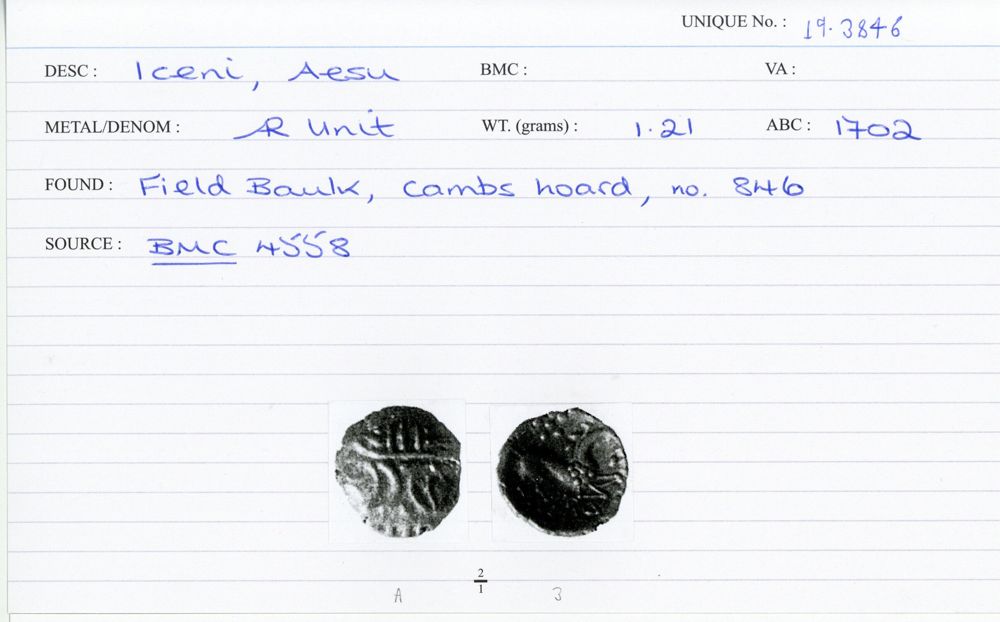 UNIQUE No. : 19.3846
DESC : Iceni, Aesu BMC : VA :
METAL/DENOM : AR Unit WT. (grams) : 1.21 ABC : 1702
FOUND : Field Baulk, Cambs hoard, no. 846
SOURCE : BMC 4558
2
1
A 3